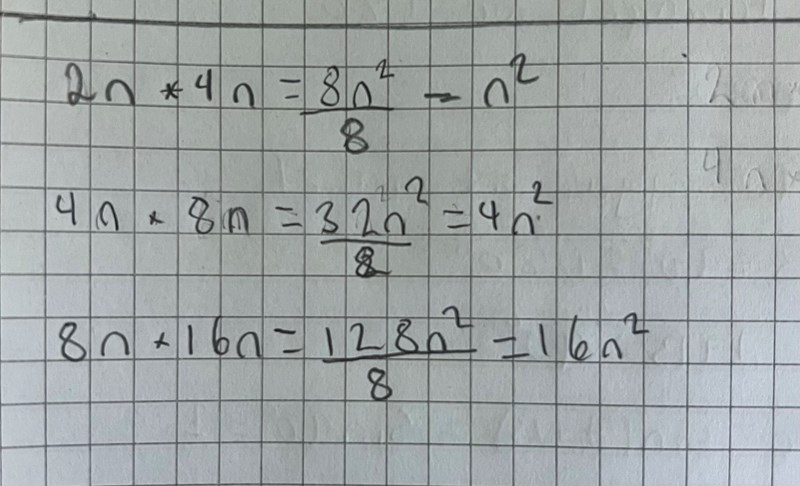 2n * 4n = 8n²/8 - n²
4n * 8n = 32n²/8 = 4n²
8n * 16n = 128n²/8 = 16n²